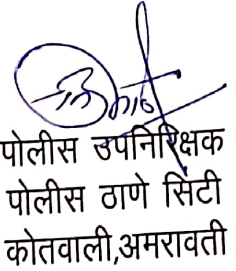 पोलीस उपनिरिक्षक
पोलीस ठाणे सिटी
कोतवाली,अमरावती